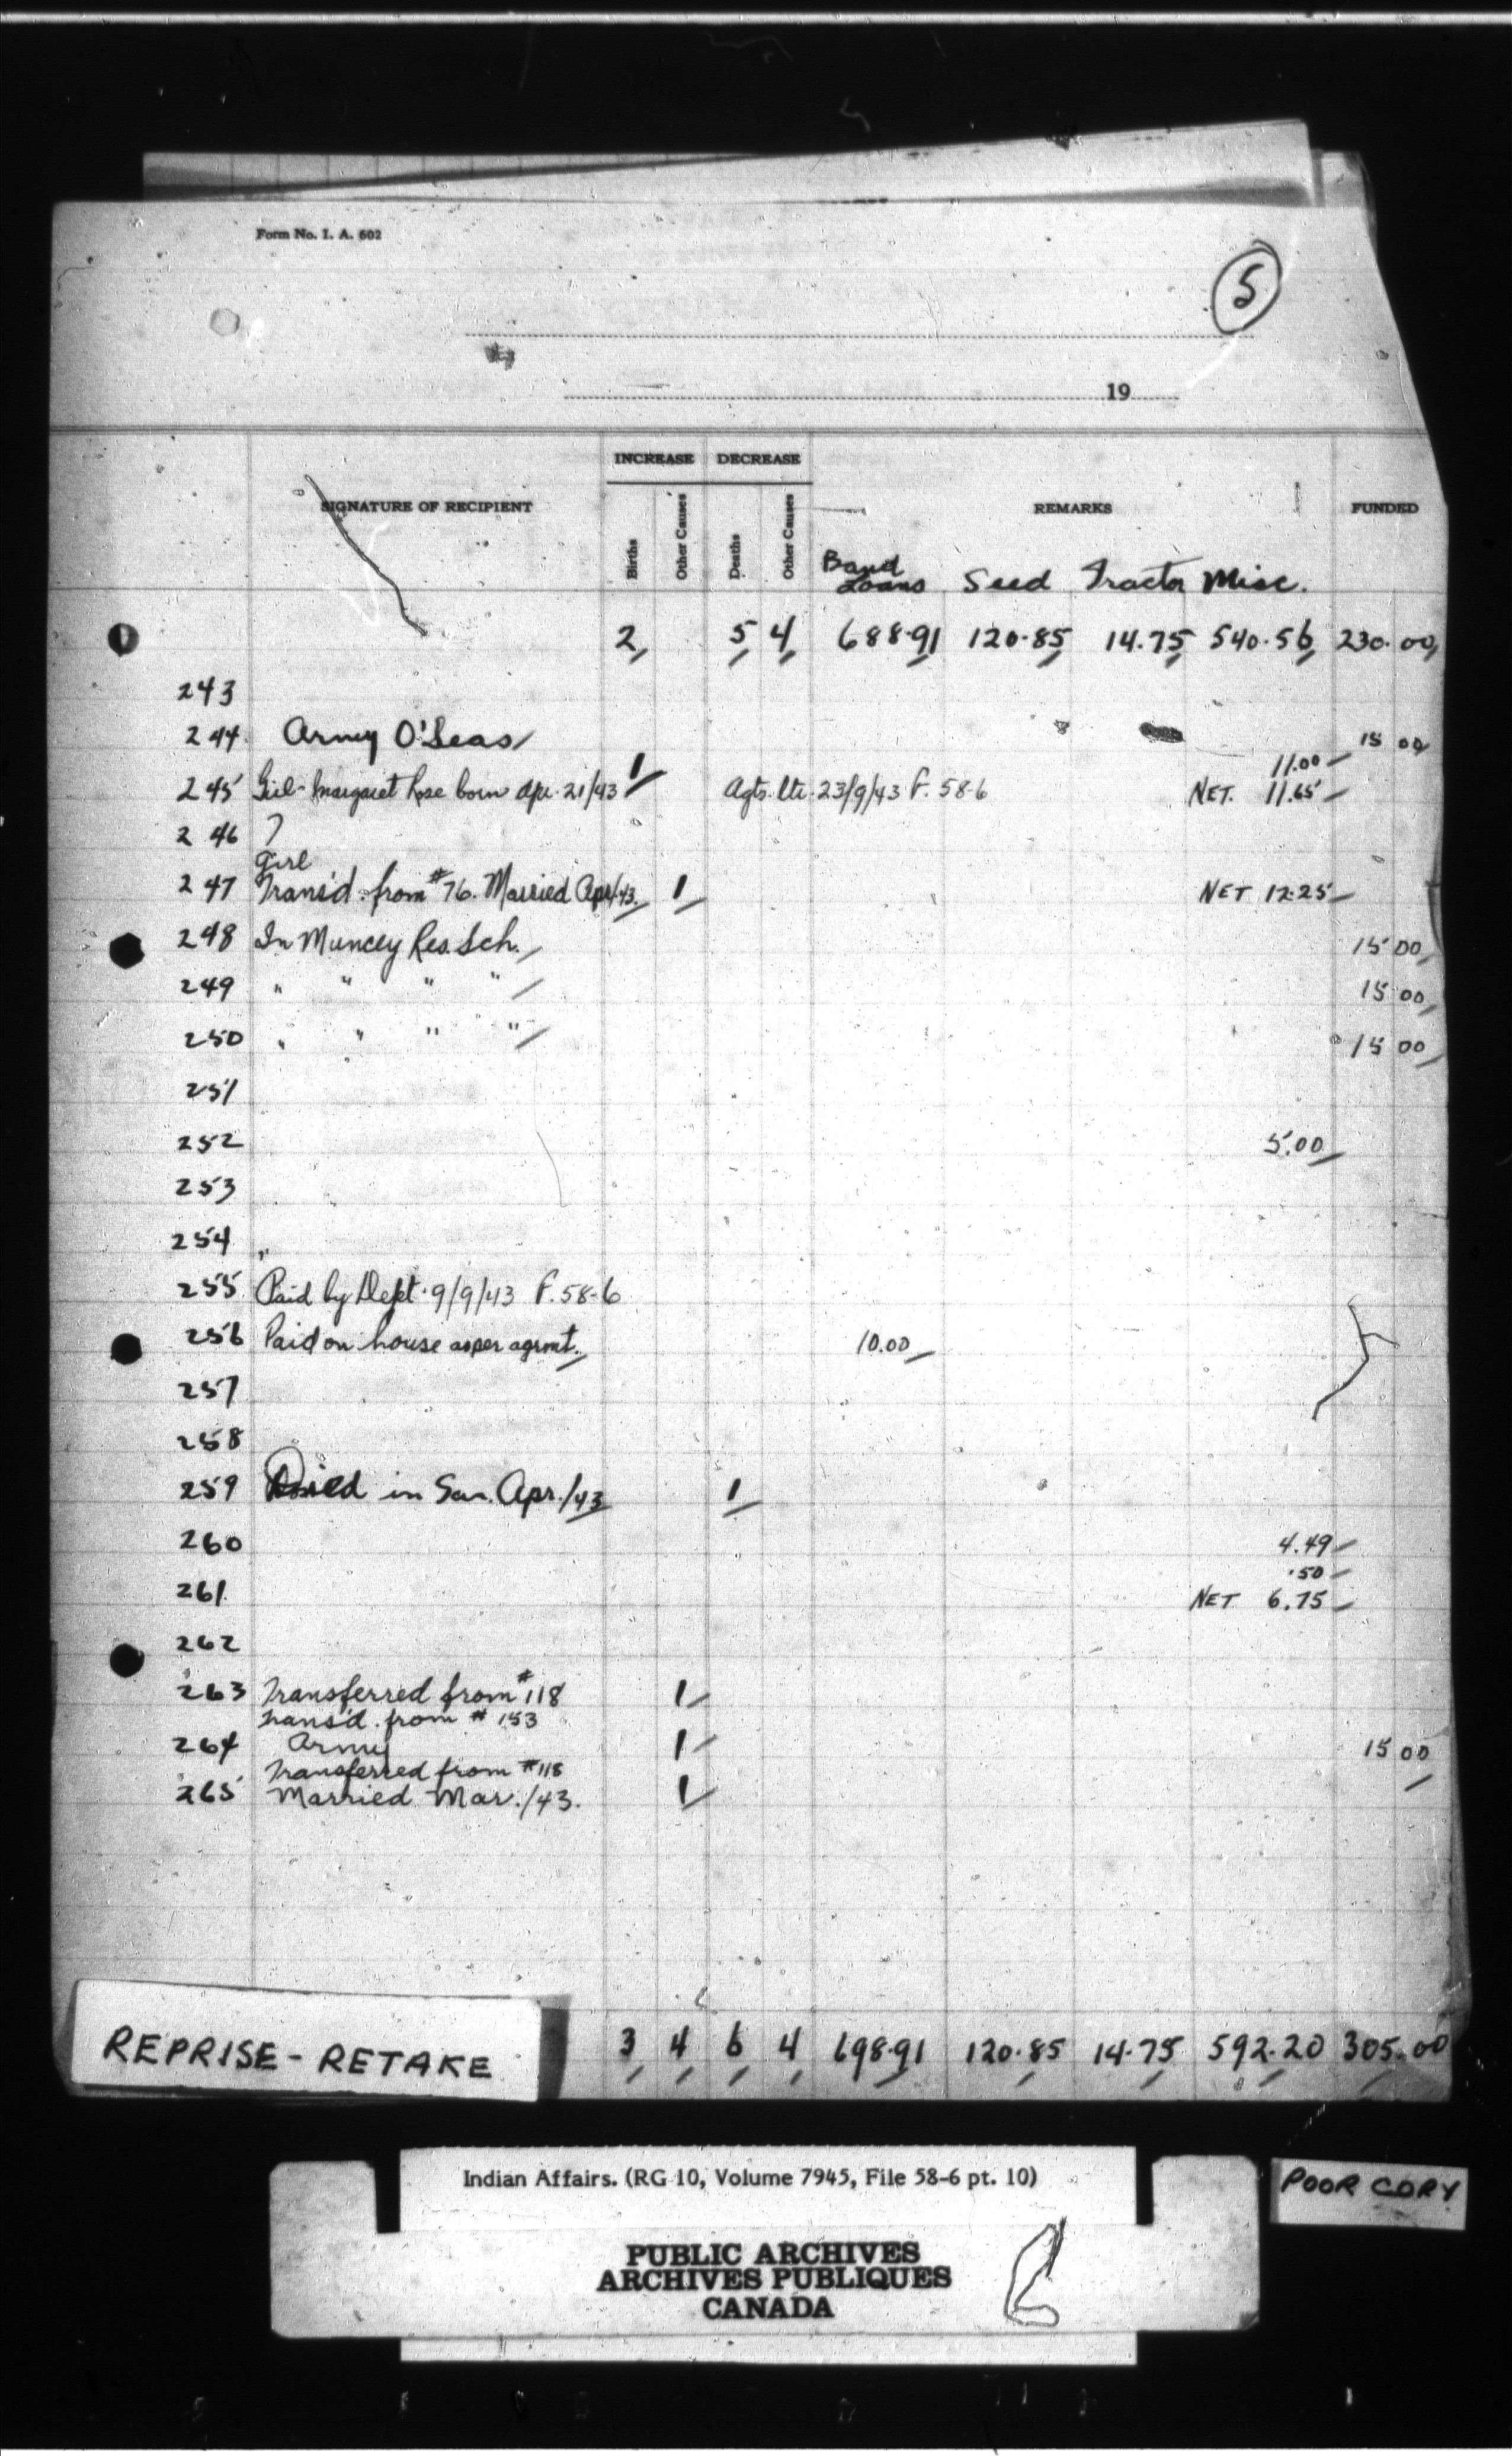 Form No. I. A. 602
5
19
SIGNATURE OF RECIPIENT INCREASE DECREASE REMARKS FUNDED
Births Other Causes Deaths Other Causes Band Loans Seed Tractor Misc.
2 5 4 688.91 120.85 14.75 540.56 230.00
243
244 Army O'Seas 15 00
11.00
245 Girl - Margaret Rose born Apr. 21/43 1 Agts. ltr. 23/9/43 F. 58-6 NET. 11.65
246 ?
Girl
247 Trans'd. from #76. Married Apr/43. 1 NET 12.25
248 In Muncey Res. Sch. 15 00
249 " " " " 15 00
250 " " " " 15 00
251
252 5.00
253
254 "
255 Paid by Dept. 9/9/43 F. 58-6
256 Paid on house as per agrmt. 10.00
257
258
259 Died in San. Apr./43 1
260 4.49
.50
261. NET 6.75
262
263 Transferred from #118 1
Trans'd. from # 153
264 Army 1 15 00
Transferred from #118
265 Married Mar./43. 1
3 4 6 4 698.91 120.85 14.75 592.20 305.00
REPRISE - RETAKE
Indian Affairs. (RG 10, Volume 7945, File 58-6 pt. 10)
POOR COPY
PUBLIC ARCHIVES
ARCHIVES PUBLIQUES
CANADA